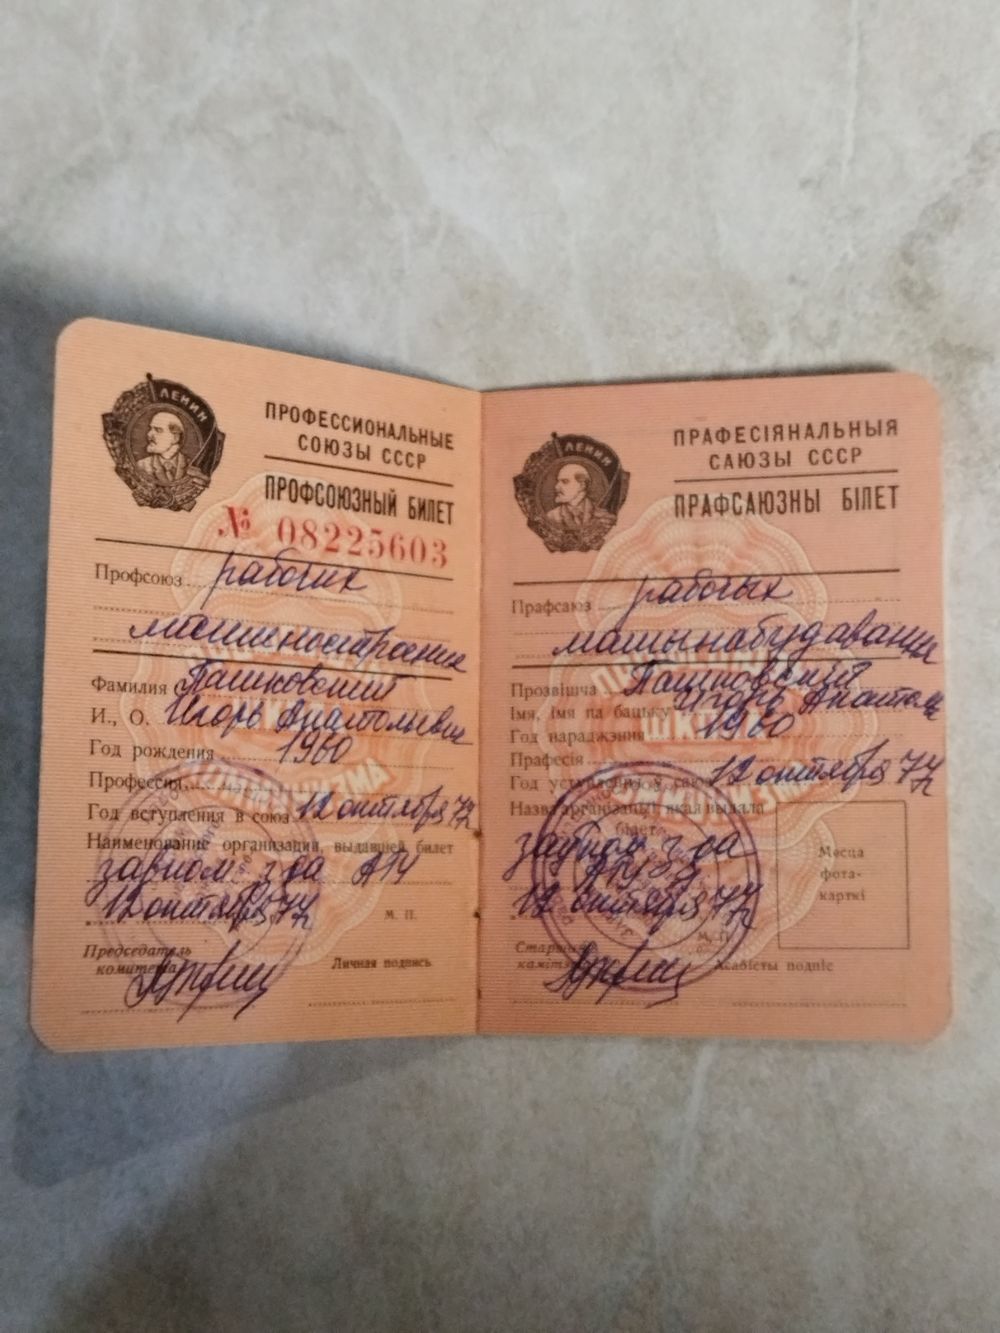 ЛЕНИН
ПРОФЕССИОНАЛЬНЫЕ
СОЮЗЫ СССР
ПРОФСОЮЗНЫЙ БИЛЕТ
№ 08225603
Профсоюз рабочих
машиностроения
Фамилия Пашковский
И., О. Игорь Анатольевич
Год рождения 1960
Профессия
Год вступления в союз 12 октября 77г
Наименование организации, выдавшей билет
завком з-да
12 октября 77г
М. П.
Председатель
комитета
Личная подпись
ЛЕНИН
ПРАФЕСІЯНАЛЬНЫЯ
САЮЗЫ СССР
ПРАФСАЮЗНЫ БІЛЕТ
Прафсаюз рабочых
машынабудавання
Прозвішча Пашковский
Імя, імя па бацьку Игорь Анатоль
Год нараджэння 1960
Прафесія
Год уступлення ў саюз 12 октября 77г
Назва арганізацыі, якая выдала
білет
завком з-да
12 октября 77г
М. П.
Месца
фота-
карткі
Старшыня
камітэта
Асабісты подпіс